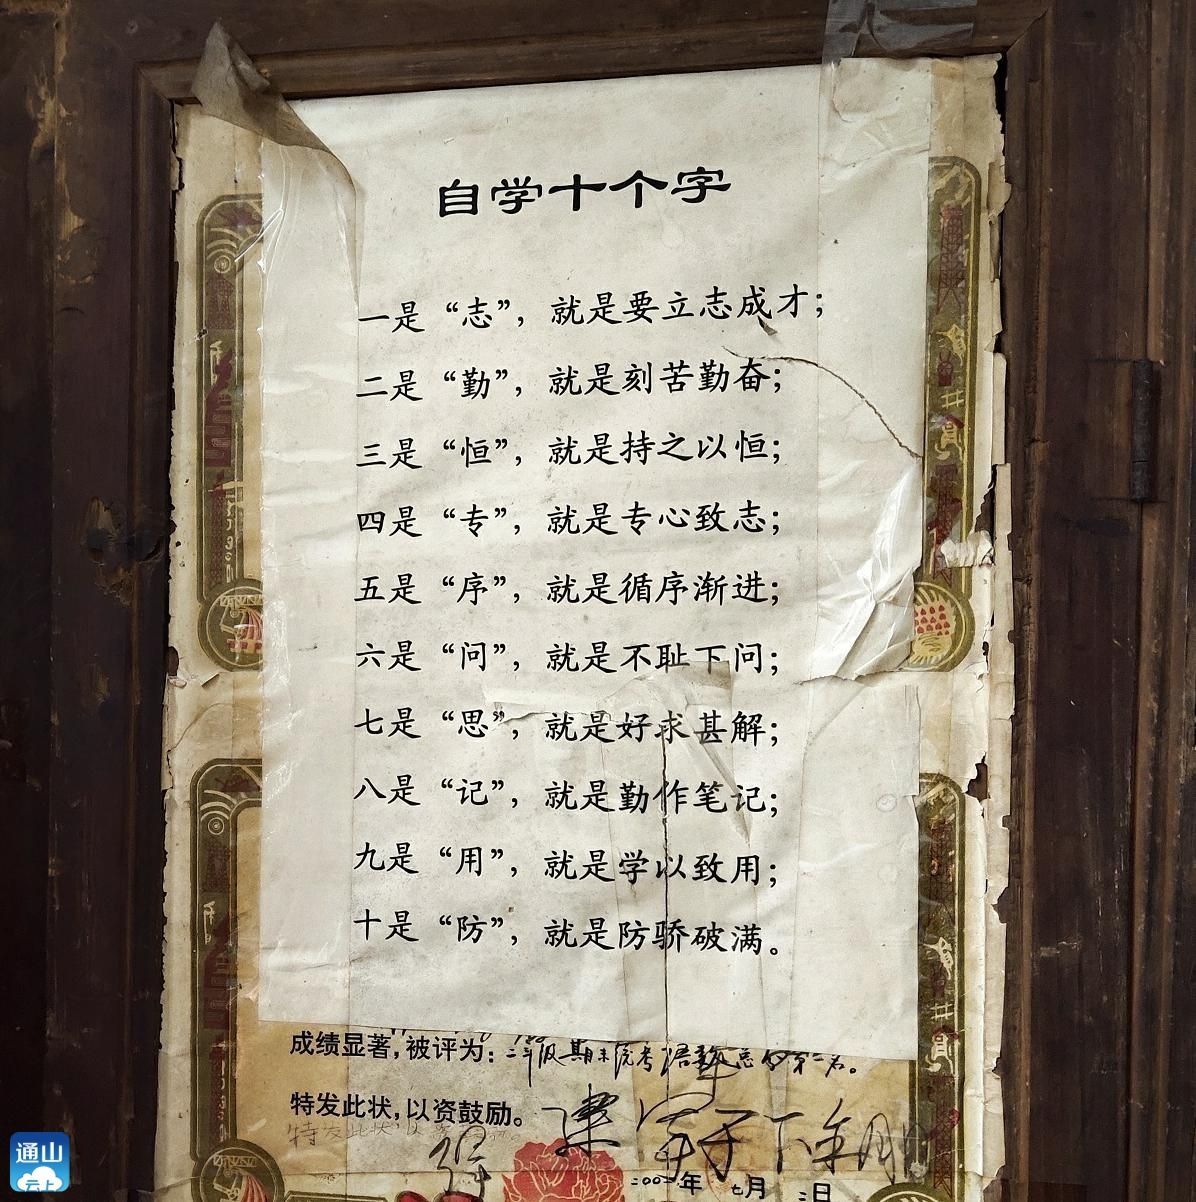 自学十个字
一是“志”，就是要立志成才；
二是“勤”，就是刻苦勤奋；
三是“恒”，就是持之以恒；
四是“专”，就是专心致志；
五是“序”，就是循序渐进；
六是“问”，就是不耻下问；
七是“思”，就是好求甚解；
八是“记”，就是勤作笔记；
九是“用”，就是学以致用；
十是“防”，就是防骄破满。
成绩显著，被评为：二年级期末统考语数总分第二名。
特发此状，以资鼓励。
特发此状 以
二〇〇二年七月二日
通山
云上